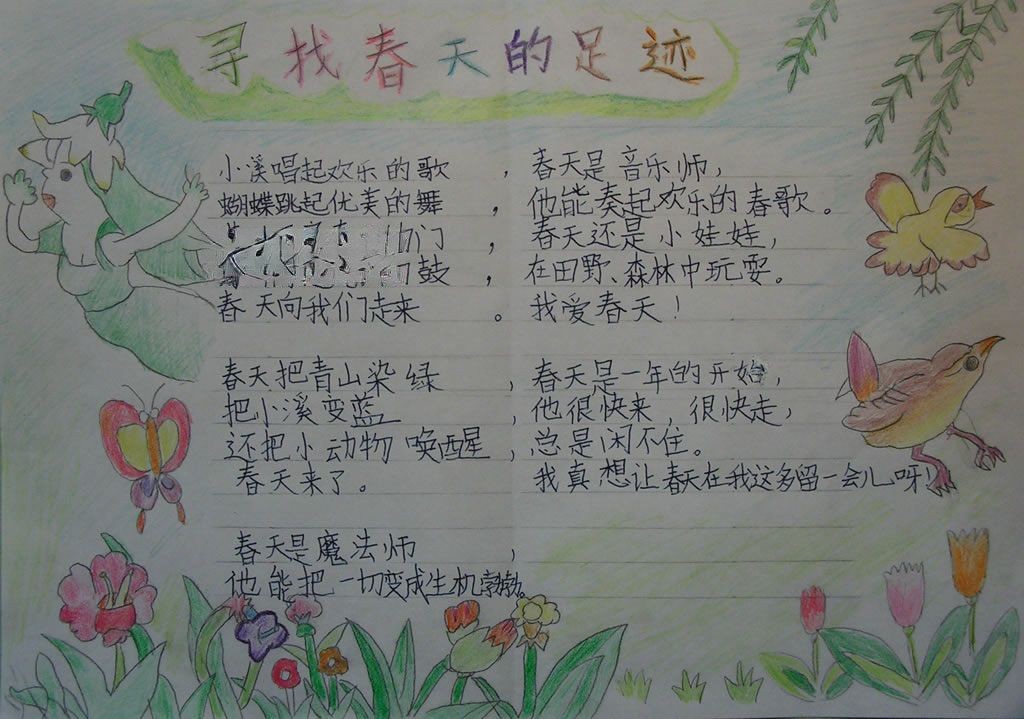 寻找春天的足迹
小溪唱起欢乐的歌，
蝴蝶跳起优美的舞，
们，
鼓，
春天向我们走来。
春天把青山染绿，
把小溪变蓝，
还把小动物唤醒，
春天来了。
春天是魔法师，
他能把一切变成生机勃勃。
春天是音乐师，
他能奏起欢乐的春歌。
春天还是小娃娃，
在田野、森林中玩耍。
我爱春天！
春天是一年的开始，
他很快来，很快走，
总是闲不住。
我真想让春天在我这多留一会儿呀！